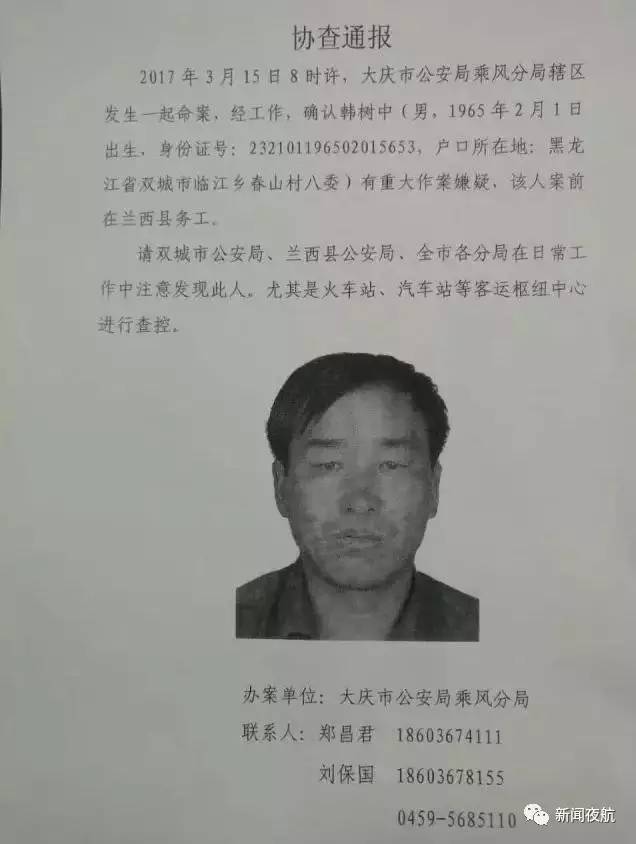 协查通报
2017年3月15日8时许，大庆市公安局乘风分局辖区
发生一起命案，经工作，确认韩树中（男，1965年2月1日
出生，身份证号：232101196502015653，户口所在地：黑龙
江省双城市临江乡春山村八委）有重大作案嫌疑，该人案前
在兰西县务工。
请双城市公安局、兰西县公安局、全市各分局在日常工
作中注意发现此人。尤其是火车站、汽车站等客运枢纽中心
进行查控。
办案单位：大庆市公安局乘风分局
联系人：郑昌君 18603674111
刘保国 18603678155
0459-5685110
新闻夜航